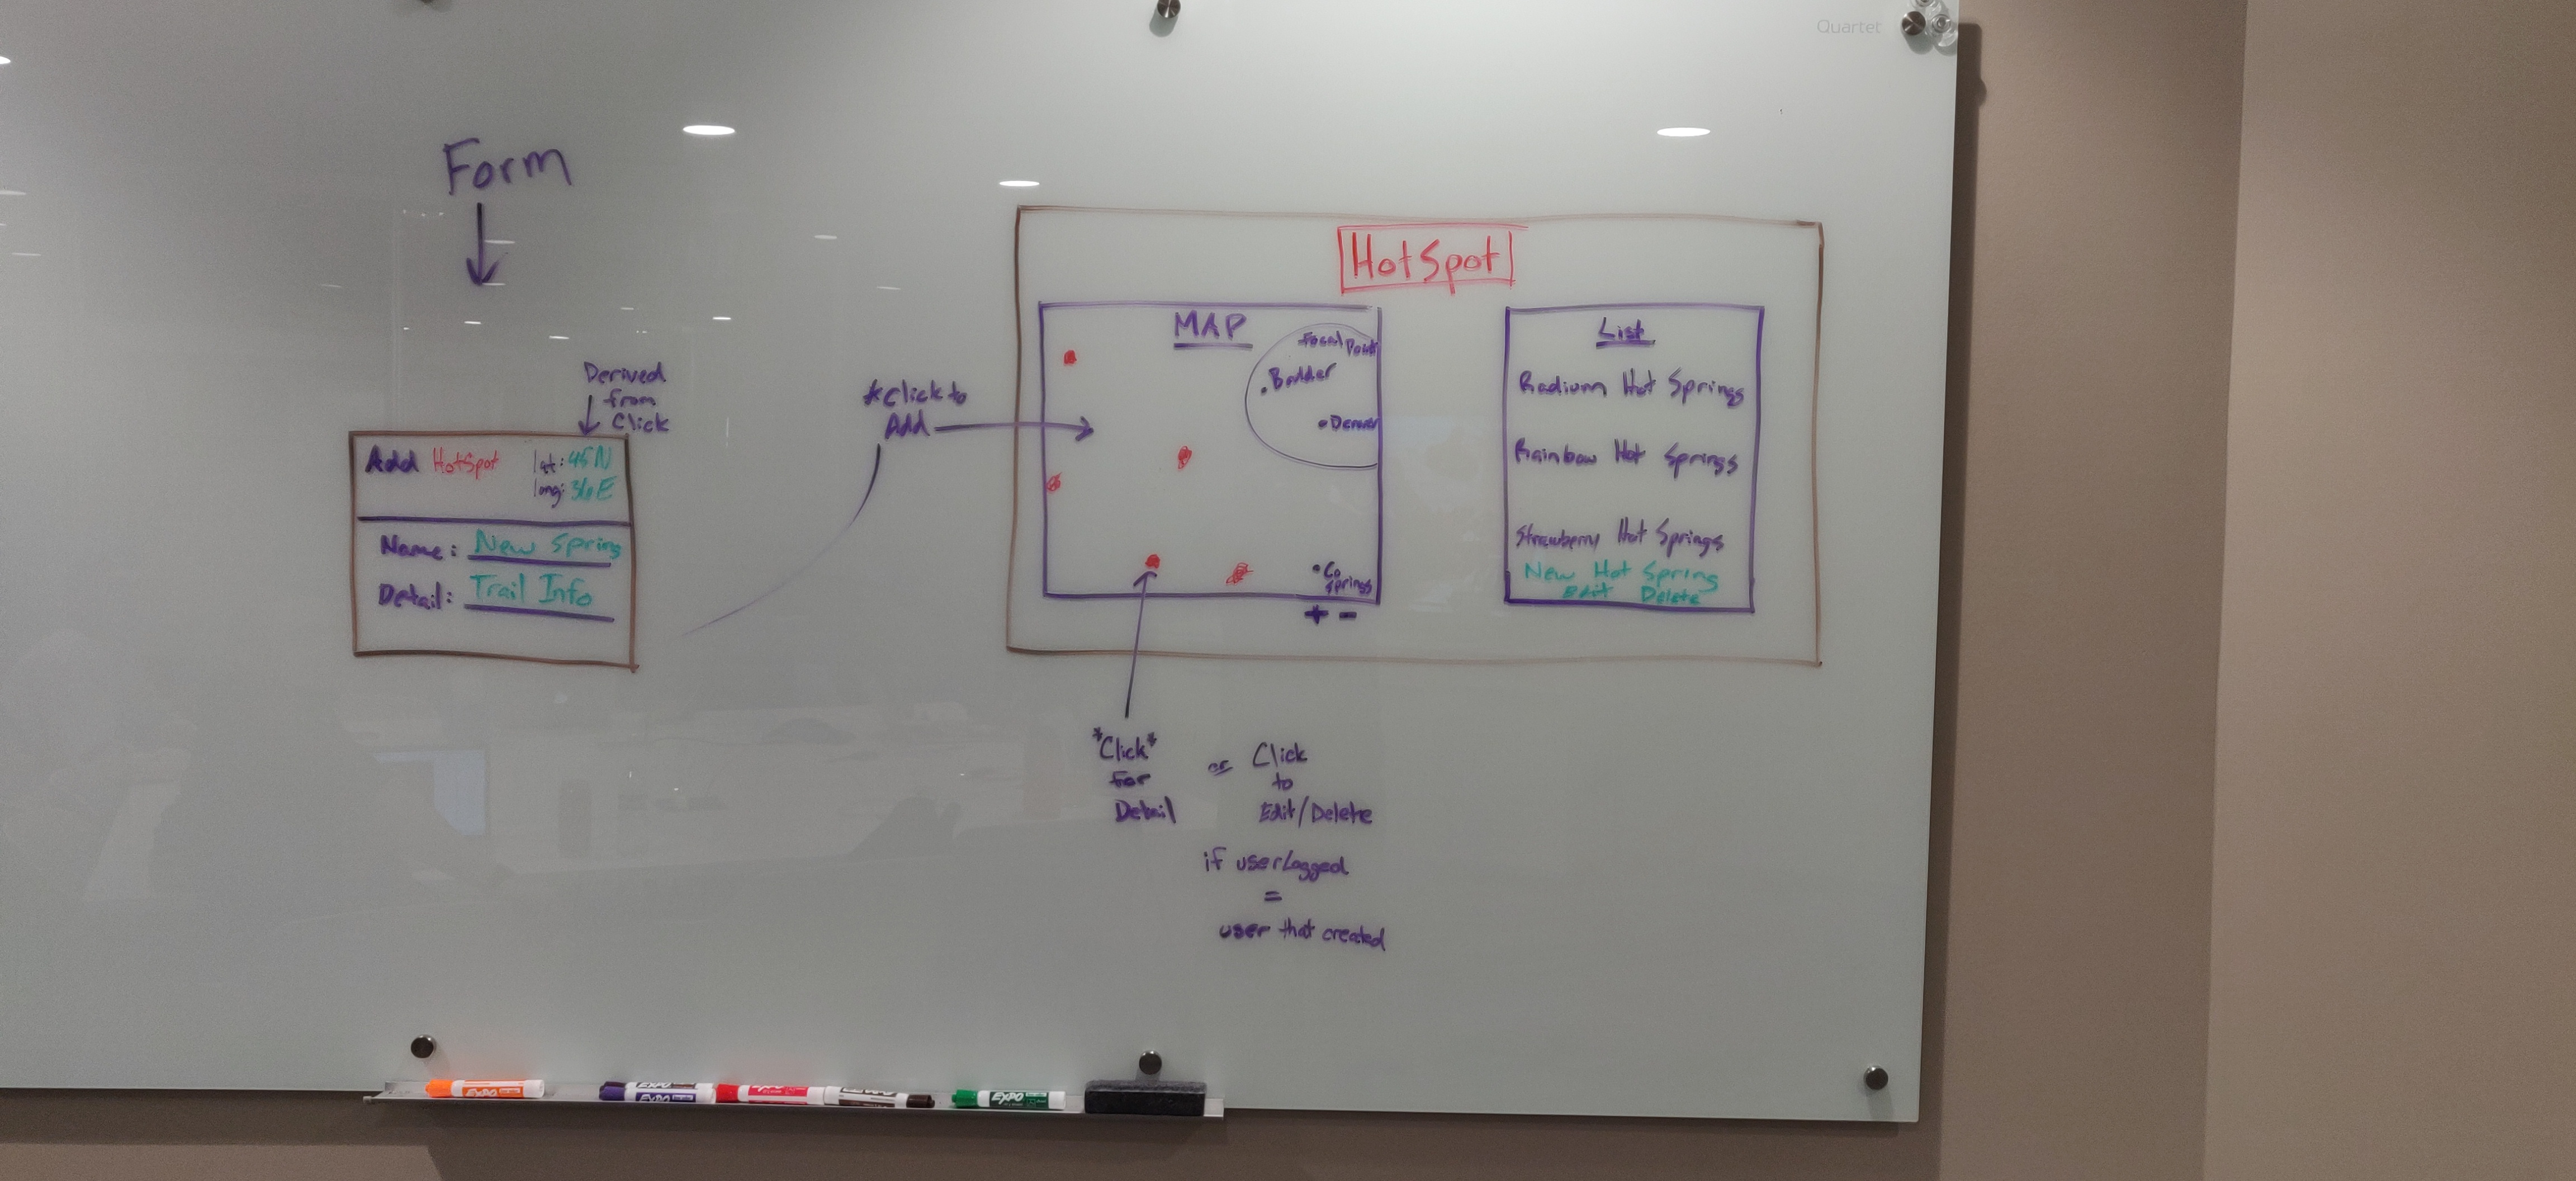 Quartet
Form
Derived
from
Click
Add HotSpot
lat: 45N
long: 36E
Name: New Spring
Detail: Trail Info
*Click to
Add
HotSpot
MAP
Focal Point
Boulder
Denver
Co
Springs
+ -
List
Radium Hot Springs
Rainbow Hot Springs
Strawberry Hot Springs
New Hot Spring
Edit Delete
*Click*
for
Detail
or
Click
to
Edit/Delete
if userLogged
=
user that created
EXPO
EXPO
EXPO
EXPO